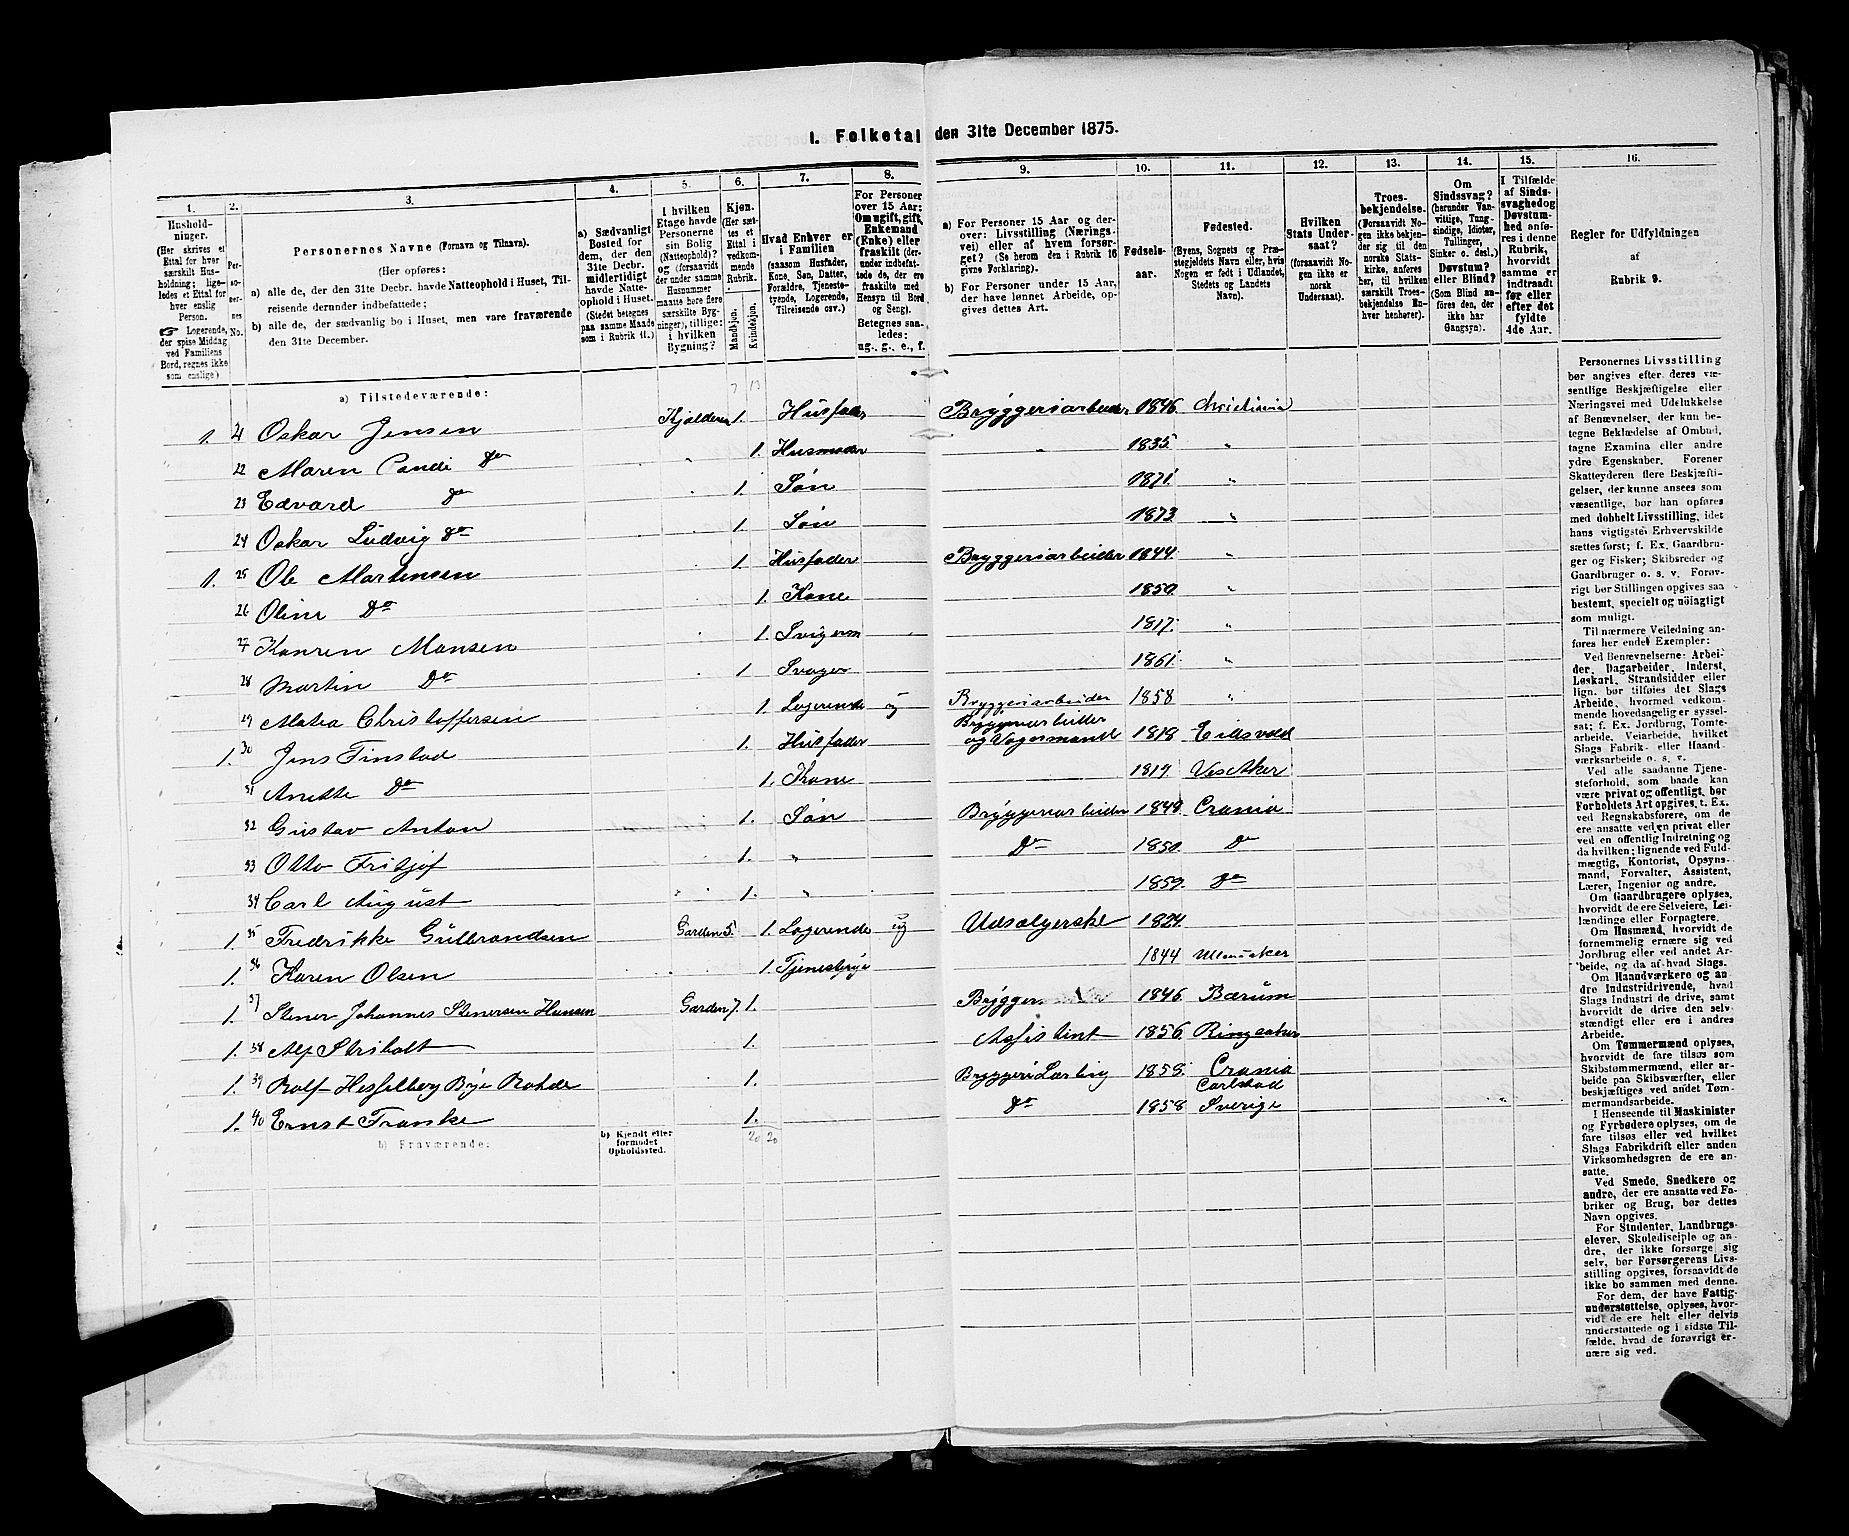 1. Folketal den 31te December 1875.
1. 2. 3. 4. 5. 6. 7. 8. 9. 10. 11. 12. 13. 14. 15. 16.
Hushold-
ninger.
(Her skrives et
Ettal for hver
særskilt Hus-
holdning; lige-
ledes et Ettal for
hver enslig
Person.
☞ Logerende,
der spise Middag
ved Familiens
Bord, regnes ikke
som enslige)
Per-
so-
ner-
nes
No.
Personernes Navne (Fornavn og Tilnavn).
(Her opføres:
a) alle de, der den 31te Decbr. havde Natteophold i Huset, Til-
reisende derunder indbefattede;
b) alle de, der sædvanlig bo i Huset, men vare fraværende
den 31te December.
a) Sædvanligt
Bosted for
dem, der den
31te Decbr.
midlertidigt
havde Natte-
ophold i Huset.
(Stedet betegnes
paa samme Maade
som i Rubrik 11.)
I hvilken
Etage havde
Personerne
sin Bolig
(Natteophold)?
og (forsaavidt
der under samme
Husnummer
maatte høre flere
særskilte Byg-
ninger), tillige:
i hvilken
Bygning?
Kjøn.
(Her sæt-
tes et
Ettal i
vedkom-
mende
Rubrik.)
Mandkjøn.
Kvindekjøn.
Hvad Enhver er
i Familien
(saasom Husfader,
Kone, Søn, Datter,
Forældre, Tjeneste-
tyende, Logerende,
Tilreisende osv.)
For Personer
over 15 Aar:
Om ugift, gift,
Enkemand
(Enke) eller
fraskilt (der-
under indbefat-
tede de, der ere
fraskilte med
Hensyn til Bord
og Seng).
Betegnes saa-
ledes:
ug., g., e., f.
a) For Personer 15 Aar og der-
over: Livsstilling (Nærings-
vei) eller af hvem forsør-
get? (Se herom den i Rubrik 16
givne Forklaring).
b) For Personer under 15 Aar,
der have lønnet Arbeide, op-
gives dettes Art.
Fødsels-
aar.
Fødested.
(Byens, Sognets og Præ-
stegjeldets Navn eller, hvis
Nogen er født i Udlandet,
Stedets og Landets
Navn).
Hvilken
Stats Under-
saat?
(forsaavidt No-
gen ikke er
norsk
Undersaat).
Troes-
bekjendelse.
(Forsaavidt No-
gen ikke bekjen-
der sig til den
norske Stats-
kirke, anføres
her, til hvilken
særskilt Troes-
bekjendelse En-
hver henhører).
Om
Sindssvag?
(herunder Van-
vittige, Tung-
sindige, Idioter,
Tullinger,
Sinker o. desl.)
Døvstum?
eller Blind?
(Som Blind an-
føres den, der
ikke har
Gangsyn).
I Tilfælde
af Sinds-
svaghed og
Døvstum-
hed anfø-
res i denne
Rubrik,
hvorvidt
samme er
indtraadt
før eller
efter det
fyldte
4de Aar.
Regler for Udfyldningen
af
Rubrik 9.
a) Tilstedeværende: 7 13
1. 21 Oskar Jensen Kjælderen 1. Husfader Bryggeriarbeider 1846. Christiania
22 Maren Do " 1. Husmoder " 1835. "
23 Edvard Do 1. Søn 1871. "
24 Oskar Ludvig Do 1. Søn 1873. "
1. 25 Ole Martensen 1. Husfader Bryggeriarbeider 1844. "
26 Oline Do 1. Kone 1850. "
27 Hansen 1. Svigerm 1817. "
28 Martin Do 1. Svoger 1861. "
29 Christoffersen 1. Logerende ug Bryggeriarbeider 1858 "
1. 30 Jens Finstad 1. Husfader Bryggeriarbeider
og Vogermand 1818 Eidsvold
31 Anette Do 1. Kone 1819. Vest Aker
32 Gustav Anton 1. Søn Bryggeriarbeider 1848. Crania
33 Otto Fritjof 1. " Do 1850. Do
34 Carl August 1. " 1859. Do
1. 35 Fredrikke Gulbrandsen Gaarden 5. 1. Logerende ug Udsælgerske 1824.
1. 36 Karen Olsen 1. 1844 Ullensaker
1. 37 Stener Johannes Stenersen Hansen Gaarden 7. 1. Brygger 1846. Bærum
1. 38 Alf 1. Assistent 1856. Ringsaker
1. 39 Rolf Hesselberg Bye Rohde 1. Bryggeri Lærling 1858. Crania
1. 40 Ernst Franke 1. Do 1858. Carlstad
Sverige
20 20
b) Fraværende:
b) Kjendt eller
formodet
Opholdssted.
Personernes Livsstilling
bør angives efter deres væ-
sentlige Beskjæftigelse eller
Næringsvei med Udelukkelse
af Benævnelser, der kun be-
tegne Beklædelse af Ombud,
tagne Examina eller andre
ydre Egenskaber. Forener
Skatteyderen flere Beskjæfti-
gelser, der kunne ansees som
væsentlige, bør han opføres
med dobbelt Livsstilling, idet
hans vigtigste Erhvervskilde
sættes først; f. Ex. Gaardbru-
ger og Fisker; Skibsreder og
Gaardbruger o. s. v. Forøv-
rigt bør Stillingen opgives saa
bestemt, specielt og nöiagtigt
som muligt.
Til nærmere Veiledning an-
føres her endel Exempler:
Ved Benævnelserne: Arbei-
der, Dagarbeider, Inderst,
Løskarl, Strandsidder eller
lign. bør tilføies det Slags
Arbeide, hvormed vedkom-
mende hovedsagelig er syssel-
sat; f. Ex. Jordbrug, Tomte-
arbeide, Veiarbeide, hvilket
Slags Fabrik- eller Haand-
værksarbeide o. s. v.
Ved alle saadanne Tjene-
steforhold, som baade kan
være privat og offentligt, bør
Forholdets Art opgives, t. Ex.
ved Regnskabsførere, om de
ere ansatte ved en privat eller
ved en offentlig Indretning og
da hvilken; lignende ved Fuld-
mægtig, Kontorist, Opsyns-
mand, Forvalter, Assistent,
Lærer, Ingeniør og andre.
Om Gaardbrugere oplyses,
hvorvidt de ere Selveiere, Lei-
lændinge eller Forpagtere.
Om Husmænd, hvorvidt de
fornemmelig ernære sig ved
Jordbrug eller ved andet Ar-
beide, og da af hvad Slags.
Om Haandværkere og an-
dre Industridrivende, hvad
Slags Industri de drive, samt
hvorvidt de drive den selv-
stændigt eller ere i andres
Arbeide.
Om Tømmermænd oplyses,
hvorvidt de fare tilsøs som
Skibstømmermænd, eller ar-
beide paa Skibsværfter, eller
beskjæftiges ved andet Tøm-
mermandsarbeide.
I Henseende til Maskinister
og Fyrbødere oplyses, om de
fare tilsøs eller ved hvilket
Slags Fabrikdrift eller anden
Virksomhedsgren de ere an-
satte.
Ved Smede, Snedkere og
andre, der ere ansatte ved Fa-
briker og Brug, bør dettes
Navn opgives.
For Studenter, Landbrugs-
elever, Skoledisciple og an-
dre, der ikke forsørge sig
selv, bør Forsørgerens Livs-
stilling opgives, forsaavidt de
ikke bo sammen med denne.
For dem, der have Fattig-
understøttelse, oplyses, hvor-
vidt de ere helt eller delvis
understøttede og i sidste Til-
fælde, hvad de forøvrigt er-
nære sig ved.